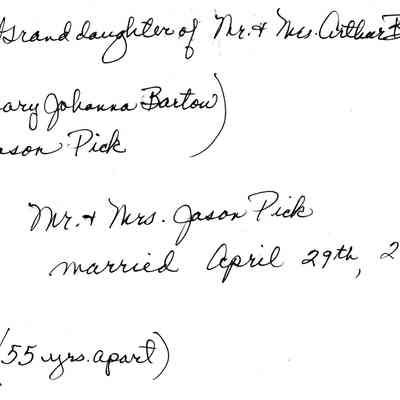 Granddaughter of Mr. & Mrs. Arthur B
ary Johanna Bartow)
ason Pick
Mr. & Mrs. Jason Pick
married April 29th, 2
(55 yrs. apart)